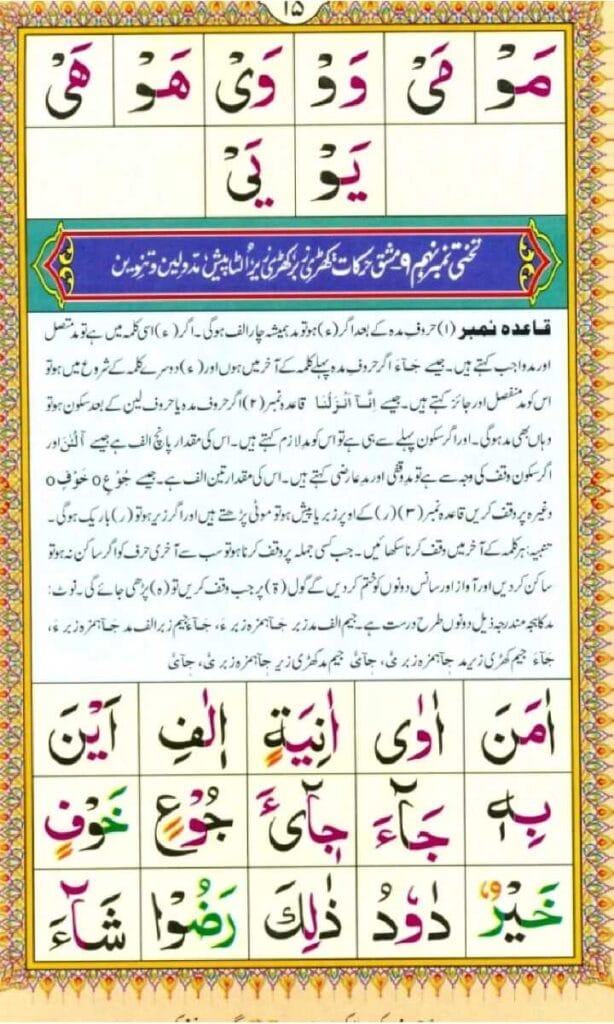 ۱۵
مَوْ مَیْ وَوْ وَیْ هَوْ هَیْ
یَوْ یَیْ
تختی نمبر نہم ۹۔ مشق حرکات کھڑی زبر کھڑی زیر اُلٹا پیش مدولین وتنوین
قاعدہ نمبر (۱) حروف مدہ کے بعد اگر (ء) ہو تو مد ہمیشہ چار الف ہوگی۔ اگر (ء) اسی کلمہ میں ہے تو مد متصل
اور مد واجب کہتے ہیں۔ جیسے جَآءَ اگر حروف مدہ پہلے کلمہ کے آخر میں ہوں اور (ء) دوسرے کلمہ کے شروع میں ہو تو
اس کو مد منفصل اور جائز کہتے ہیں۔ جیسے اِنَّآ اَنْزَلْنَا قاعدہ نمبر (۲) اگر حروف مدہ یا حروف لین کے بعد سکون ہو تو
وہاں بھی مد ہوگی۔ اور اگر سکون پہلے سے ہی ہے تو اس کو مد لازم کہتے ہیں۔ اس کی مقدار پانچ الف ہے جیسے آلْئٰنَ اور
اگر سکون وقف کی وجہ سے ہے تو مد وقفی اور مد عارضی کہتے ہیں۔ اس کی مقدار تین الف ہے۔ جیسے جُوْعٍ o خَوْفٍ o
وغیرہ پر وقف کریں قاعدہ نمبر (۳) (ر) کے اوپر زبر یا پیش ہو تو موٹی پڑھتے ہیں اور اگر زیر ہو تو (ر) باریک ہوگی۔
تنبیہ: ہر کلمہ کے آخر میں وقف کرنا سکھائیں۔ جب کسی جملہ پر وقف کرنا ہو تو سب سے آخری حرف کو اگر ساکن نہ ہو تو
ساکن کر دیں اور آواز اور سانس دونوں کو ختم کر دیں گے گول (ۃ) پر جب وقف کریں تو (ہ) پڑھی جائے گی۔ نوٹ:
مد کا ہجہ مندرجہ ذیل دونوں طرح درست ہے۔ جیم الف مد زبر جَآ ہمزہ زبر ءَ، جَآءَ جیم زبر الف مد جَآ ہمزہ زبر ءَ،
جَآءَ جیم کھڑی زیر مد جِآ ہمزہ زبر یَٔ، جِآیَٔ جیم مد کھڑی زیر جِآ ہمزہ زبر یَٔ، جِآیَٔ
اٰمَنَ اٰوٰی اٰنِیَةٍ اِلٰفِ اَیْنَ
بِهٖ جَآءَ جِایْٓءَ جُوْعٍ خَوْفٍ
خَیْرٌ دَاوٗدُ ذٰلِكَ رَضُوْا شَآءَ